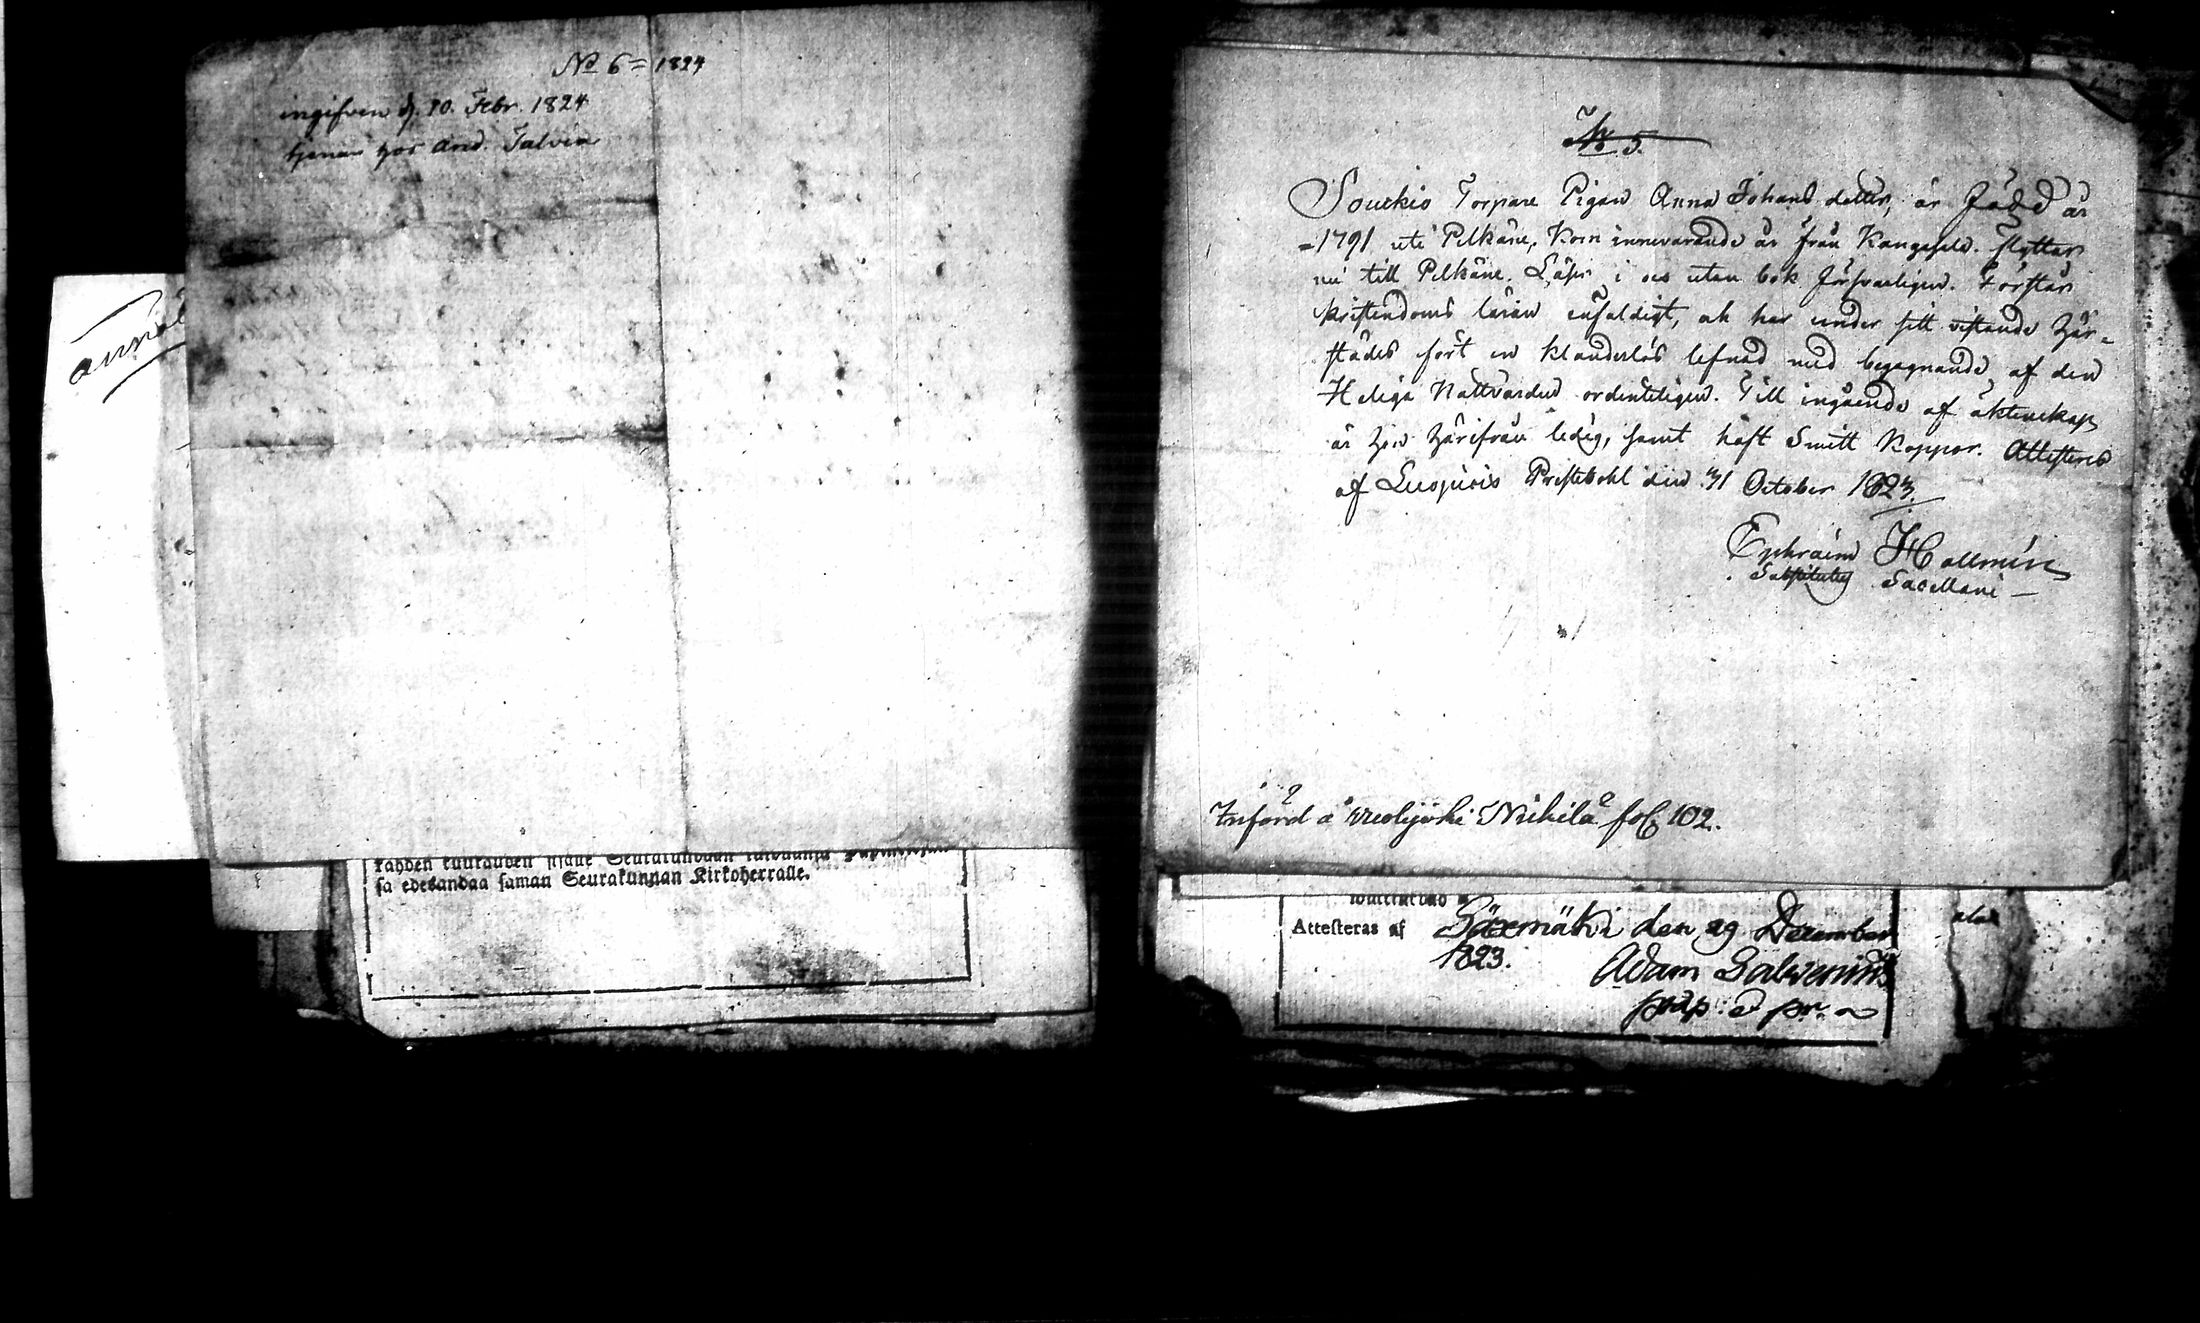 No 6 = 1824
ingifven d. 10. Febr. 1824
tjenar hos And. Talvia
sa edesandaa saman Seurakunnan Kirkoherralle.
No 5.
Soukio Torpare Pigan Anna Johans dotter, är född år
- 1791 uti Pelkäne, kom innevarande år från Kangasala. flyttar
nu till Pelkäne. Läser i och utan bok försvarligen. Förstår
kristendoms läran enfaldigt, och har under sitt vistande här-
städes fört en klanderlös lefnad med begagnande af den
Heliga Nattvarden ordenteligen. Till ingående af äktenskap
är hon härifrån ledig, samt haft Smitt Koppor. Attesteras
af Luopiois Prestebohl den 31 October 1823.
Ephraim Hallmén
Substitutus Sacellani
Införd å Uvolijoki Nickilä fol. 102.
Attesteras af Säxmäki den 29 December
1823.
Adam Salvenius